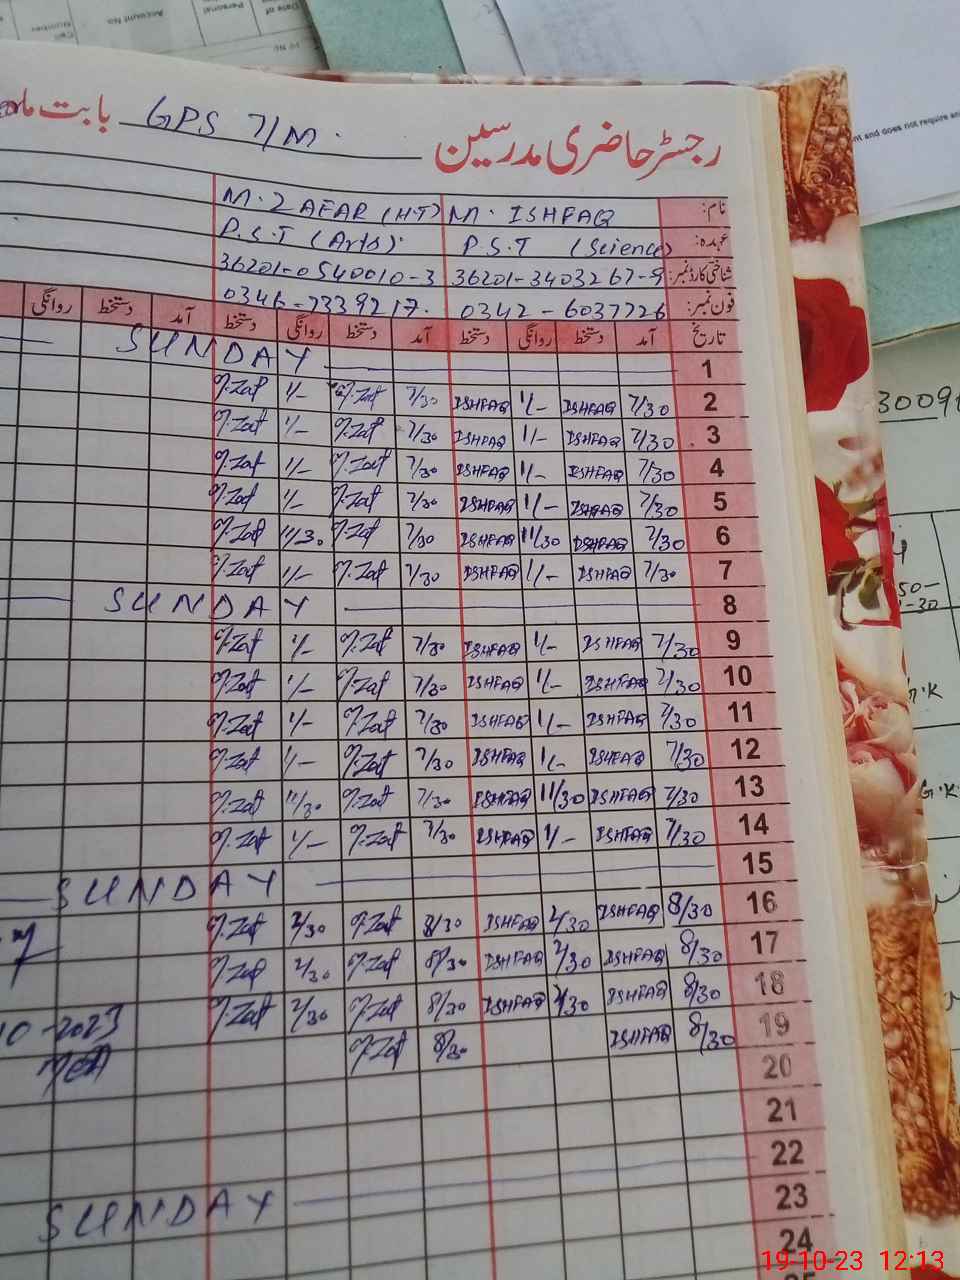 رجسٹر حاضری مدرسین بابت ماہ GPS 7/M.
نام: M. ISHFAQ M. ZAFAR (H.T)
عہدہ: P.S.T (Science) P.S.T (Arts).
شناختی کارڈ نمبر: 36201-3403267-9 36201-0540010-3
فون نمبر: 0342-6037726 0346-7339217.
تاریخ آمد دستخط روانگی دستخط آمد دستخط روانگی دستخط آمد دستخط روانگی
1 SUNDAY
2 7/30 ISHFAQ 1/- ISHFAQ 7/30 M.Zaf 1/- M.Zaf
3 7/30 ISHFAQ 1/- ISHFAQ 7/30 M.Zaf 1/- M.Zaf
4 7/30 ISHFAQ 1/- ISHFAQ 7/30 M.Zaf 1/- M.Zaf
5 7/30 ISHFAQ 1/- ISHFAQ 7/30 M.Zaf 1/- M.Zaf
6 7/30 ISHFAQ 11/30 ISHFAQ 7/30 M.Zaf 11/30 M.Zaf
7 7/30 ISHFAQ 1/- ISHFAQ 7/30 M.Zaf 1/- M.Zaf
8 SUNDAY
9 7/30 ISHFAQ 1/- ISHFAQ 7/30 M.Zaf 1/- M.Zaf
10 7/30 ISHFAQ 1/- ISHFAQ 7/30 M.Zaf 1/- M.Zaf
11 7/30 ISHFAQ 1/- ISHFAQ 7/30 M.Zaf 1/- M.Zaf
12 7/30 ISHFAQ 1/- ISHFAQ 7/30 M.Zaf 1/- M.Zaf
13 7/30 ISHFAQ 11/30 ISHFAQ 7/30 M.Zaf 11/30 M.Zaf
14 7/30 ISHFAQ 1/- ISHFAQ 7/30 M.Zaf 1/- M.Zaf
15 SUNDAY
16 8/30 ISHFAQ 2/30 ISHFAQ 8/30 M.Zaf 2/30 M.Zaf
17 8/30 ISHFAQ 2/30 ISHFAQ 8/30 M.Zaf 2/30 M.Zaf
18 8/30 ISHFAQ 2/30 ISHFAQ 8/30 M.Zaf 2/30 M.Zaf
19 8/30 ISHFAQ 8/30 M.Zaf
10-2023
20
21
22 SUNDAY
23
24
19-10-23 12:13